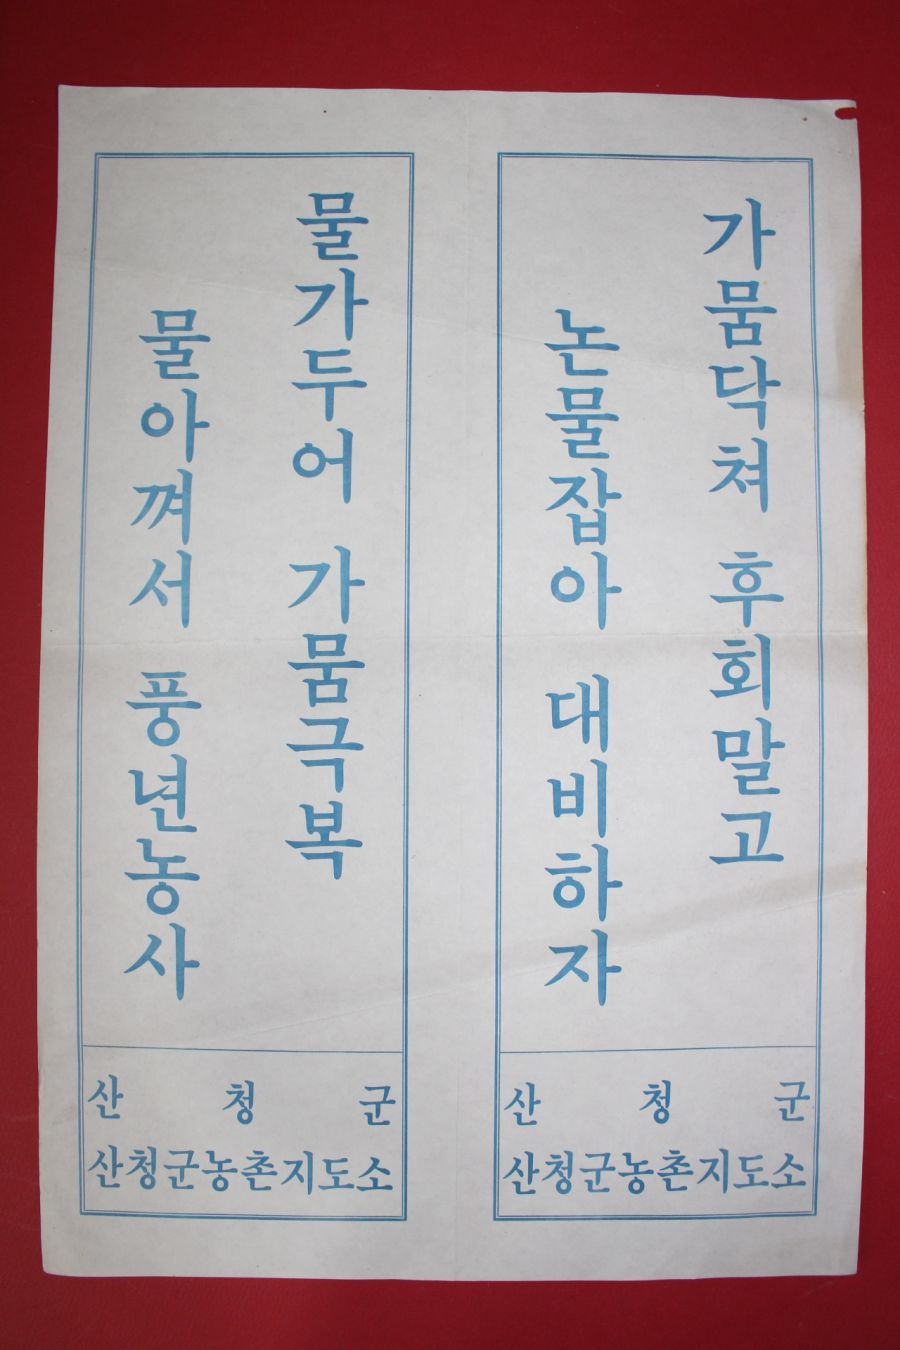 가뭄닥쳐 후회말고
논물잡아 대비하자
산청군
산청군농촌지도소
물가두어 가뭄극복
물아껴서 풍년농사
산청군
산청군농촌지도소